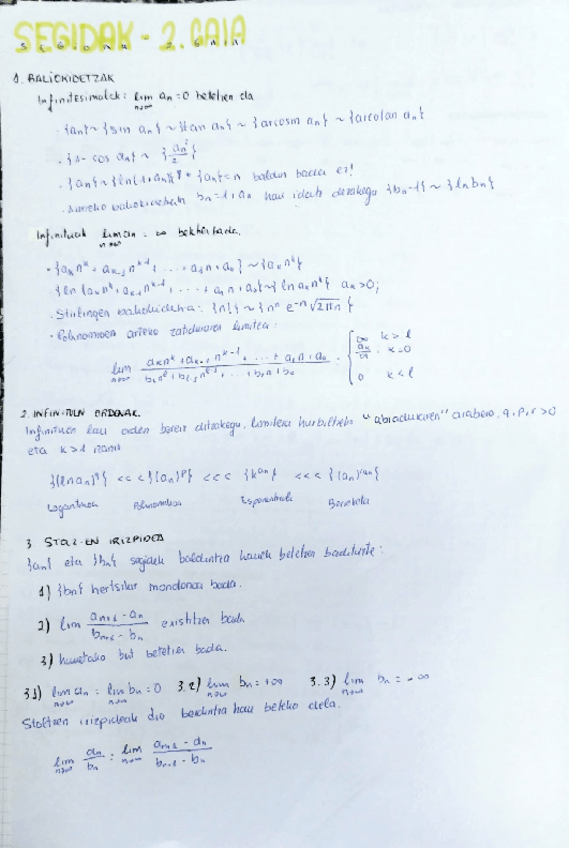 SEGIDAK - 2. GAIA
1. BALIOKIDETZAK
Infinitesimalak: lim n→∞ an = 0 betetzen da
· {an} ~ {sin an} ~ {tan an} ~ {arcsin an} ~ {arctan an}
· {1 - cos an} ~ {an²/2}
· {an} ~ {ln(1+an)} {an} = n baldin bada ez!
· Aurreko baliokidetzak bn = 1 + an hau idatz dezakegu {bn - 1} ~ {ln bn}
Infinituak lim n→∞ an = ∞ betetzen bada.
· {ak n^k + ak-1 n^k-1 + ... + a1 n + a0} ~ {ak n^k}
· {ln (ak n^k + ak-1 n^k-1 + ... + a1 n + a0)} ~ {ln ak n^k} ak > 0;
· Stirlingen baliokidetza: {n!} ~ {n^n e^-n √2πn}
· Polinomioen arteko zatiduraren limitea:
lim n→∞ (ak n^k + ak-1 n^k-1 + ... + a1 n + a0) / (bl n^l + bl-1 n^l-1 + ... + b1 n + b0) = { ∞ k > l
0 k < l
2. INFINITUEN ORDENAK.
Infinituen lau orden bereiz ditzakegu, limitera hurbiltzeko "abiaduraren" arabera, q, p, r > 0
eta k > 1 izanik
{(ln an)^q} <<< {(an)^p} <<< {k^an} <<< {(an)^r an}
Logaritmoa Polinomioa Esponentziala Berreketa
3. STOLZ-EN IRIZPIDEA
{an} eta {bn} segidek baldintza hauek betetzen badituzte:
1) {bn} hertsiki monotonoa bada.
2) lim (an+1 - an) / (bn+1 - bn) existitzen bada
3) hauetako bat betetzen bada.
3.1) lim n→∞ an = lim n→∞ bn = 0 3.2) lim n→∞ bn = +∞ 3.3) lim n→∞ bn = -∞
Stoltzen irizpideak dio berdintza hau beteko dela.
lim n→∞ an / bn = lim n→∞ (an+1 - an) / (bn+1 - bn)